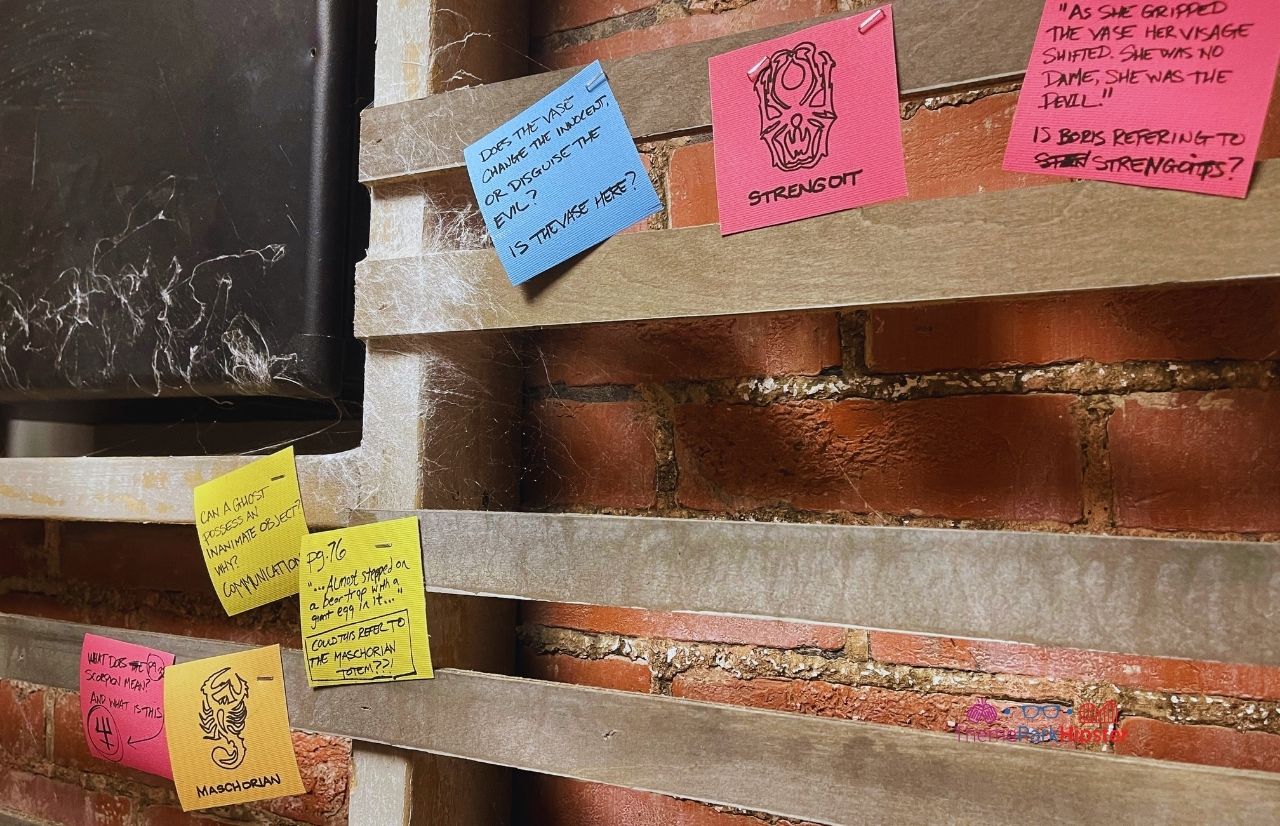 DOES THE VASE
CHANGE THE INNOCENT,
OR DISGUISE THE
EVIL?
IS THE VASE HERE?
STRENGOIT
"AS SHE GRIPPED
THE VASE HER VISAGE
SHIFTED. SHE WAS NO
DAME, SHE WAS THE
DEVIL."
IS BORIS REFERING TO
STRENGOITS?
CAN A GHOST
POSSESS AN
INANIMATE OBJECT?
WHY?
COMMUNICATION
pg. 76
"...Almost stepped on
a bear trap with a
giant egg in it..."
COULD THIS REFER TO
THE MASCHORIAN
TOTEM??!
WHAT DOES THE
SCORPION MEAN?
AND WHAT IS THIS
MASCHORIAN
ThemeParkHipster